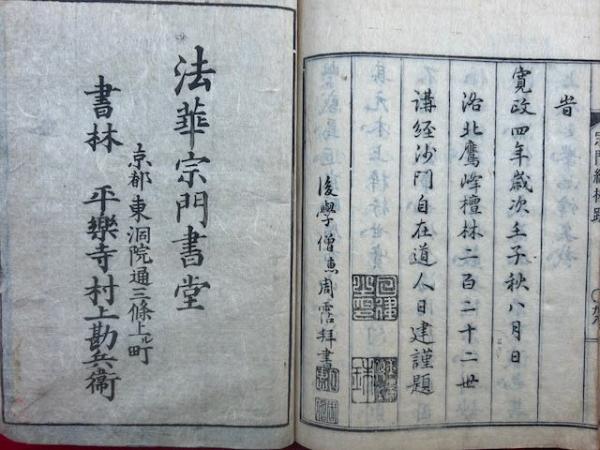 旹
寛政四年歳次壬子秋八月日
洛北鷹峰檀林二百二十二世
講経沙門自在道人日建謹題
後學僧恵周霑拜書
法華宗門書堂
京都東洞院通三條上ル町
書林 平樂寺村上勘兵衛